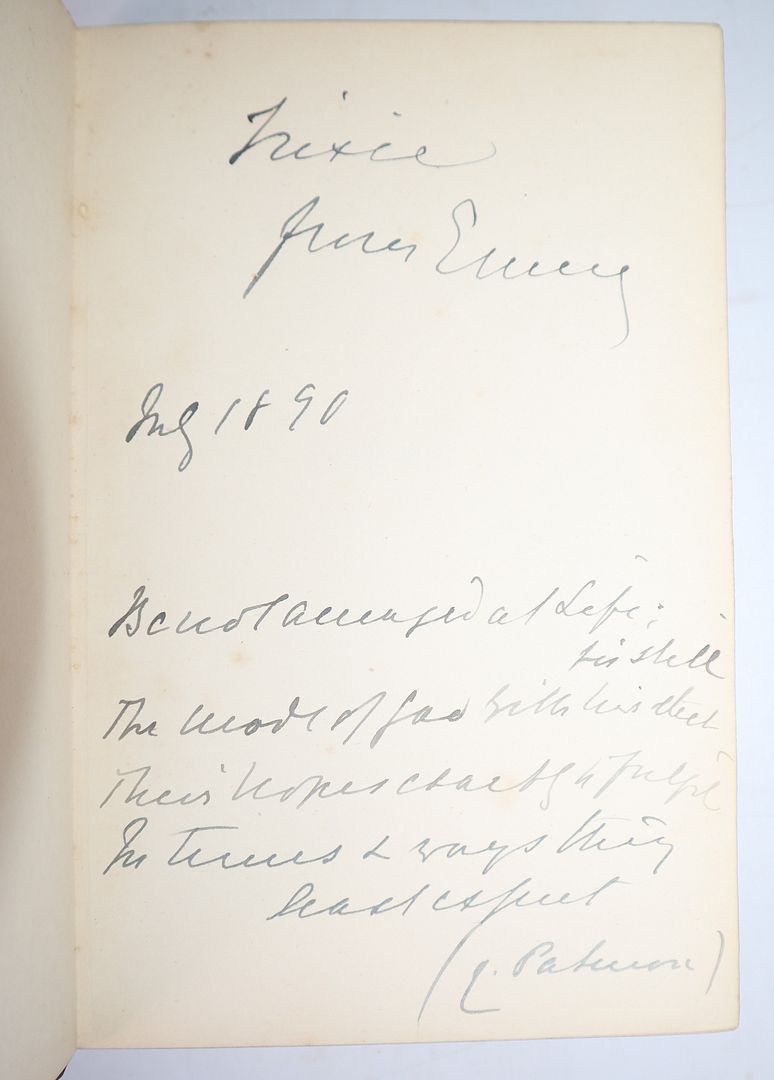 Trixie
from Emmy
July 1890
Be not amazed at Life;
'tis still
The mode of God with his elect
Their hopes exactly to fulfil
In times & ways they
least expect
(C. Patmore)